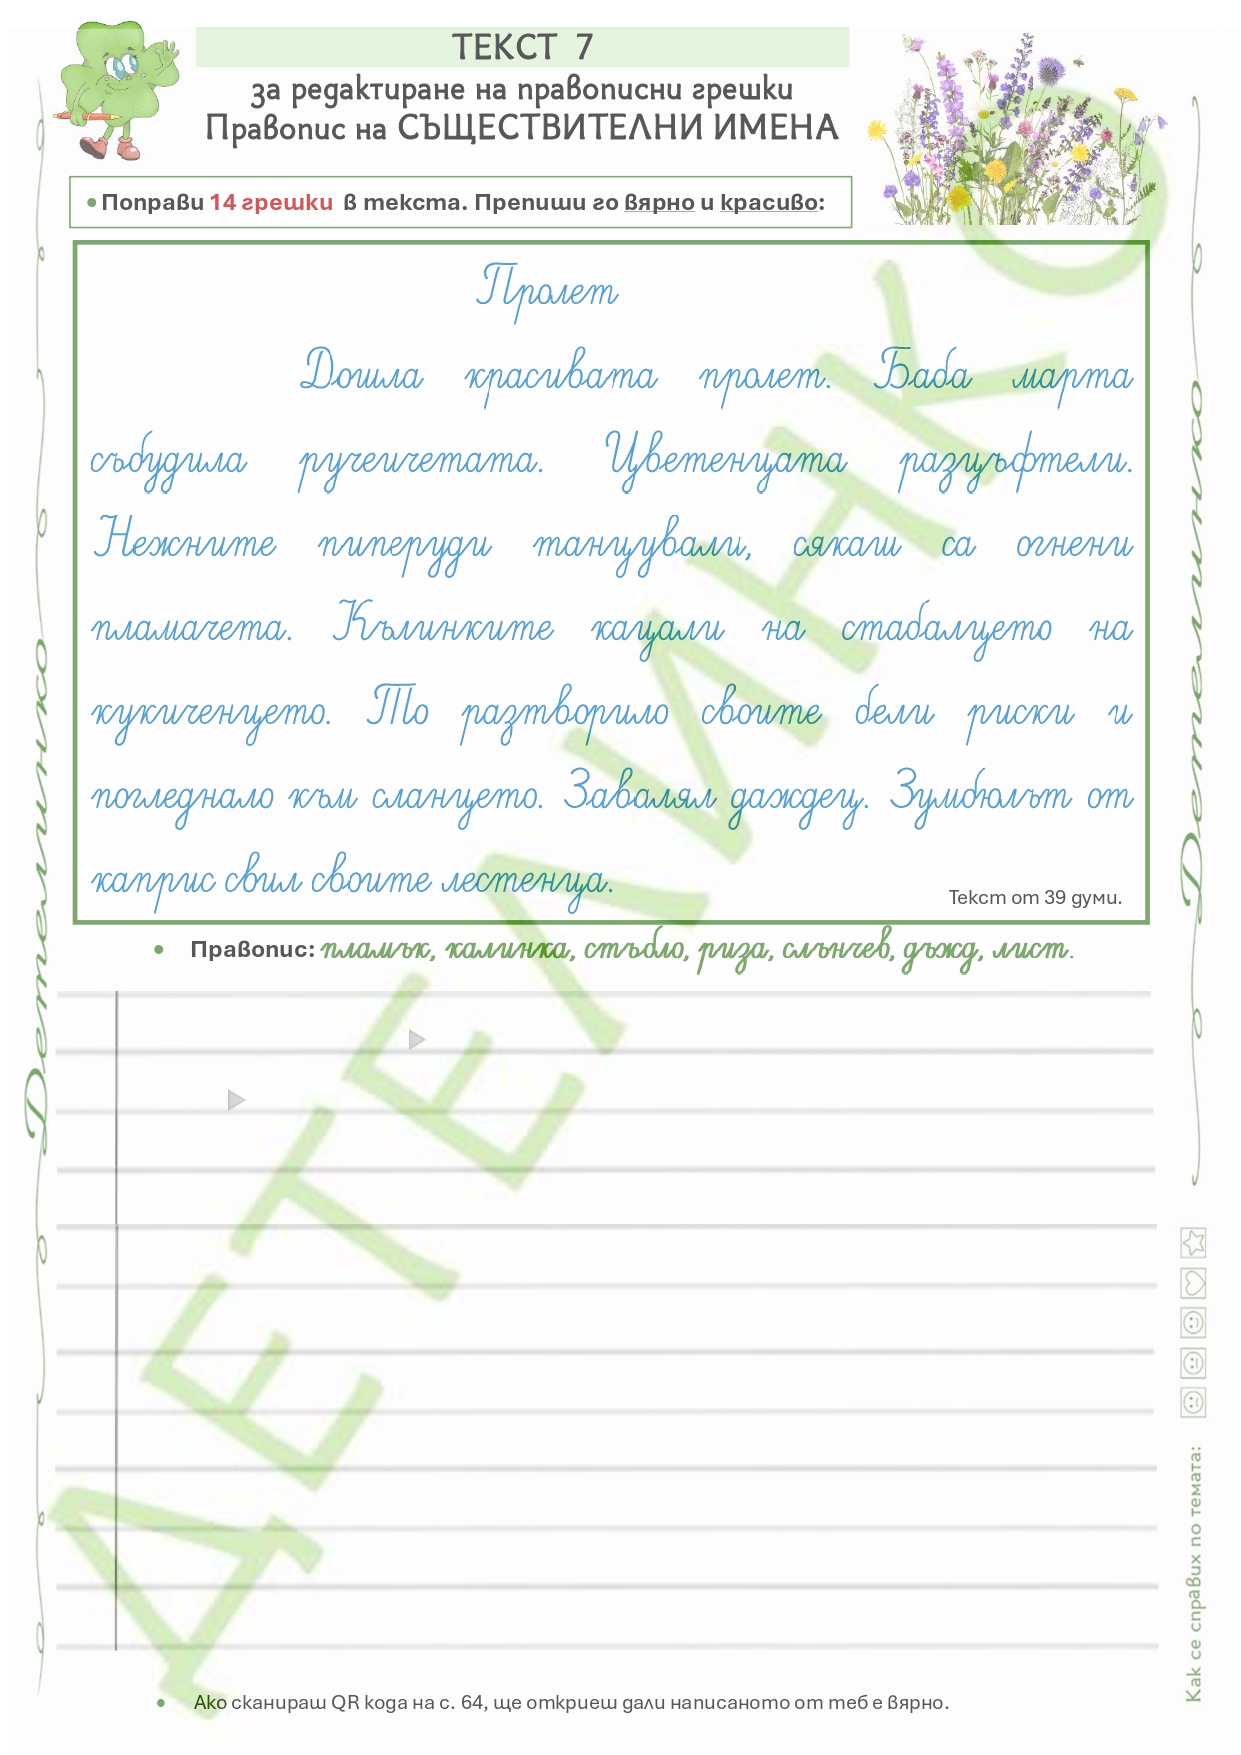 ТЕКСТ 7
за редактиране на правописни грешки
Правопис на СЪЩЕСТВИТЕЛНИ ИМЕНА
• Поправи 14 грешки в текста. Препиши го вярно и красиво:
Пролет
Дошла красивата пролет. Баба марта
събудила ручеичетата. Цветенцата разцъфтели.
Нежните пиперуди танцували, сякаш са огнени
пламачета. Кълинките кацали на стабалцето на
кукиченцето. То разтворило своите бели риски и
погледнало към сланцето. Завалял даждец. Зумбюлът от
каприс свил своите лестенца.
Текст от 39 думи.
• Правопис: пламък, калинка, стъбло, риза, слънчев, дъжд, лист.
• Ако сканираш QR кода на с. 64, ще откриеш дали написаното от теб е вярно.
Детелинко
Детелинко
Как се справих по темата:
ДЕТЕЛИНКО